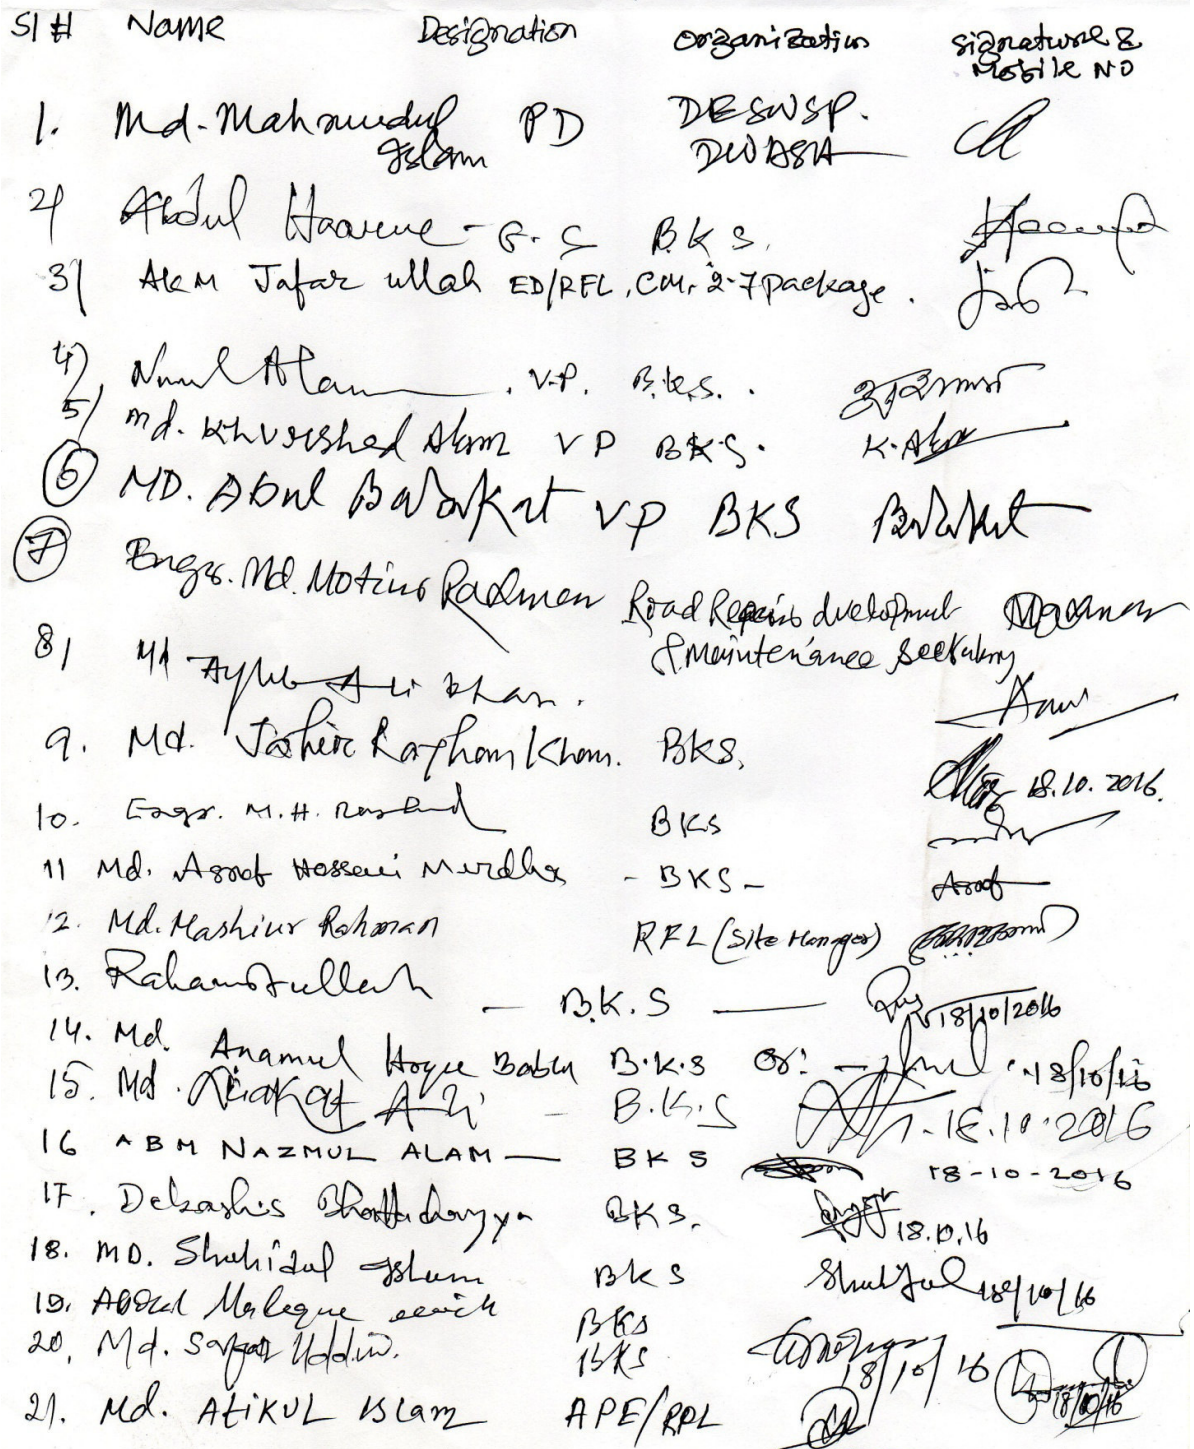 Sl # Name Designation Organization Signature & Mobile No
1. Md. Mahmudul Islam PD DESWSP. DWASA
2) Abdul G.S BKS.
3) AKM Jafar ullah ED/RFL, CM, 2-7 package.
4) Nurul Alam V.P. B.K.S.
5) Md. Khurshed Alam VP BKS. K. Alam
6 MD. Abul Barakat VP BKS Barakat
7 Engr. Md. Motiur Rahman Road Repairs development & Maintenance Secretary
8) Md Ayub Ali Khan.
9. Md. Khan. BKS. 18.10.2016.
10. Engr. M.H. Rashid BKS
11 Md. Asraf Hossain Mirdha - BKS - Asraf
12. Md. Mashiur Rahman RFL (Site Manager)
13. Rahamatullah - B.K.S - 18/10/2016
14. Md. Anamul Hoque Bablu B.K.S 18/10/16
15. Md. Liakat Ali - B.K.S 18.10.2016
16 ABM NAZMUL ALAM - BKS 18-10-2016
17. Debashis Bhattacharyya BKS. 18.10.16
18. MD. Shahidul Islam BKS 18/10/16
19. Abdul Maleque BKS
20. Md. Uddin. BKS 18/10/16 18/10/16
21. Md. Atikul Islam APE/RFL